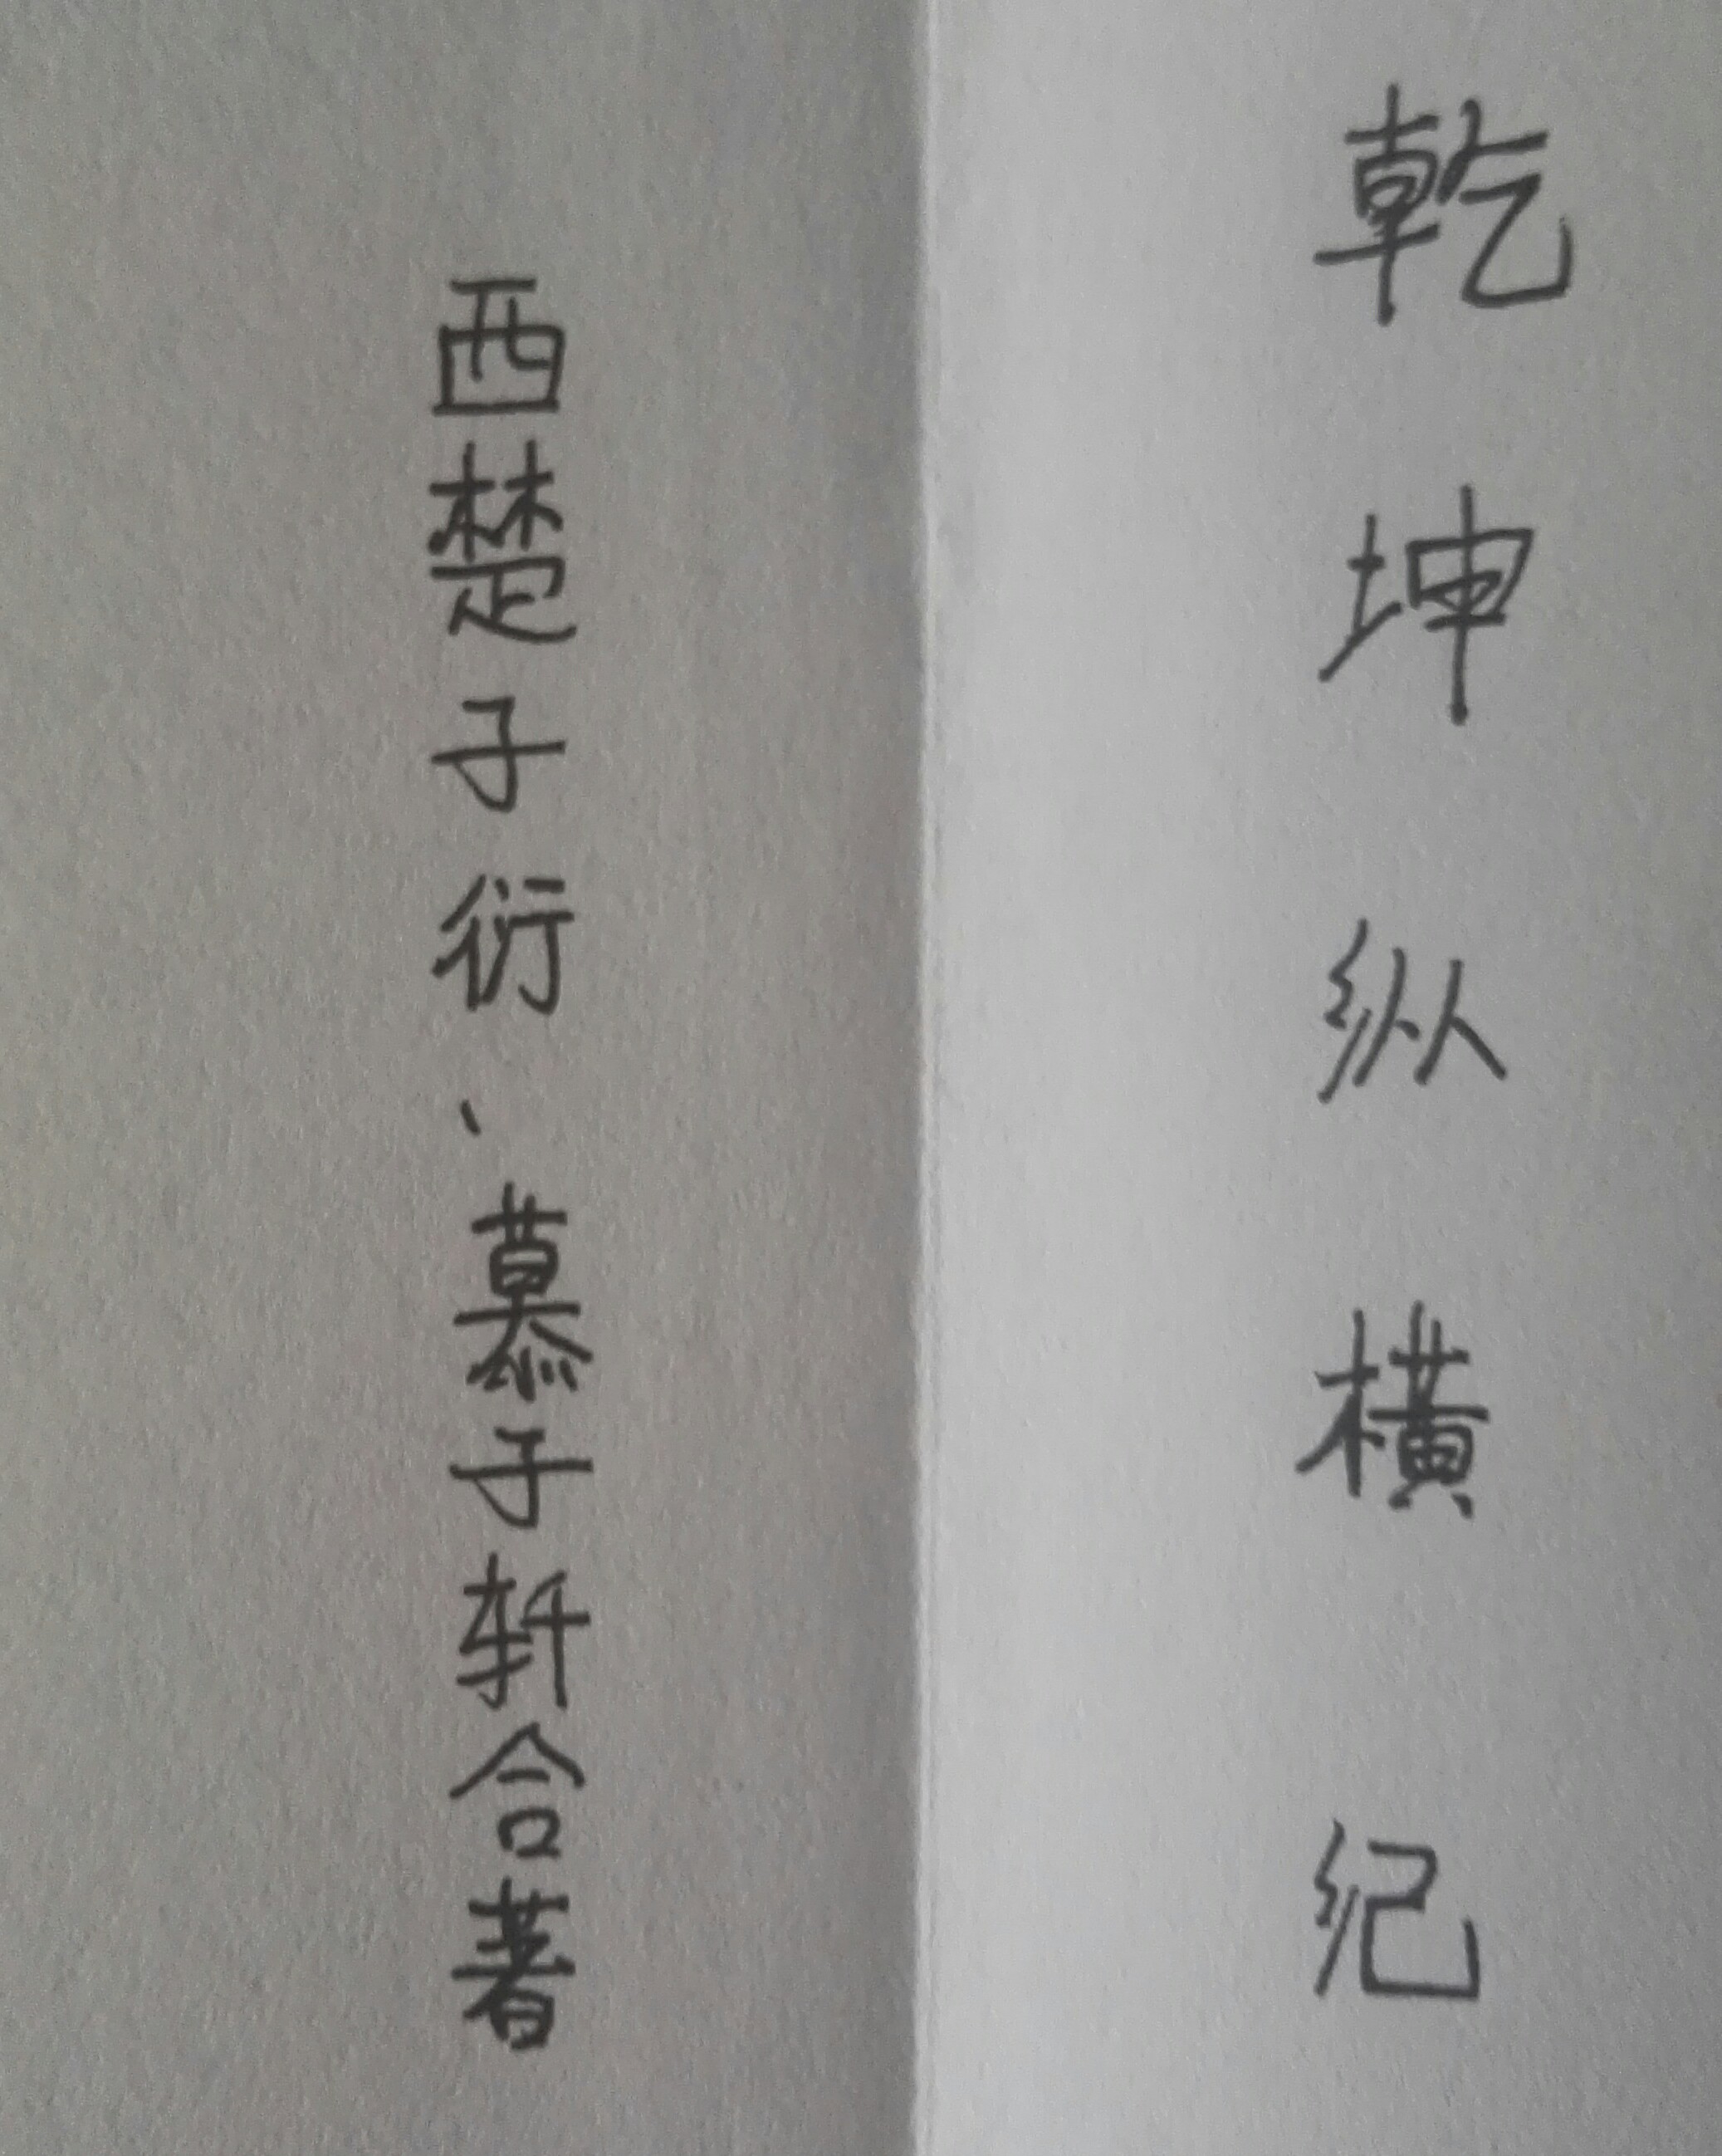 乾坤纵横纪
西楚子衍、慕子轩合著